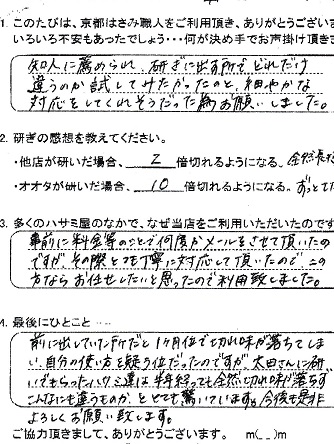 1. このたびは、京都はさみ職人をご利用頂き、ありがとうござい
いろいろ不安もあったでしょう・・・何が決め手でお声掛け頂き
知人に薦められ、研ぎに出す所でどれだけ
違うのか試してみたかったのと、細やかな
対応をしてくれそうだった為お願いしました。
2. 研ぎの感想を教えてください。
・他店が研いだ場合、 2 倍切れるようになる。全然長持
・オオタが研いだ場合、 10 倍切れるようになる。ずっとも
3. 多くのハサミ屋のなかで、なぜ当店をご利用いただいたのです
事前に料金等のことで何度かメールをさせて頂いたの
ですが、その際とても丁寧に対応して頂いたので、この
方ならお任せしたいと思ったので利用致しました。
4. 最後にひとこと・・・・
前に出していた所だと1ヶ月位で切れ味が落ちてしま
い、自分の使い方を疑う位だったのですが、太田さんに研
いでもらったハサミ達は半年経っても全然切れ味が落ちず
こんなにも違うものか、とても驚いています。今後も是非
よろしくお願い致します。
ご協力頂きまして、ありがとうございます。 m(_ _)m